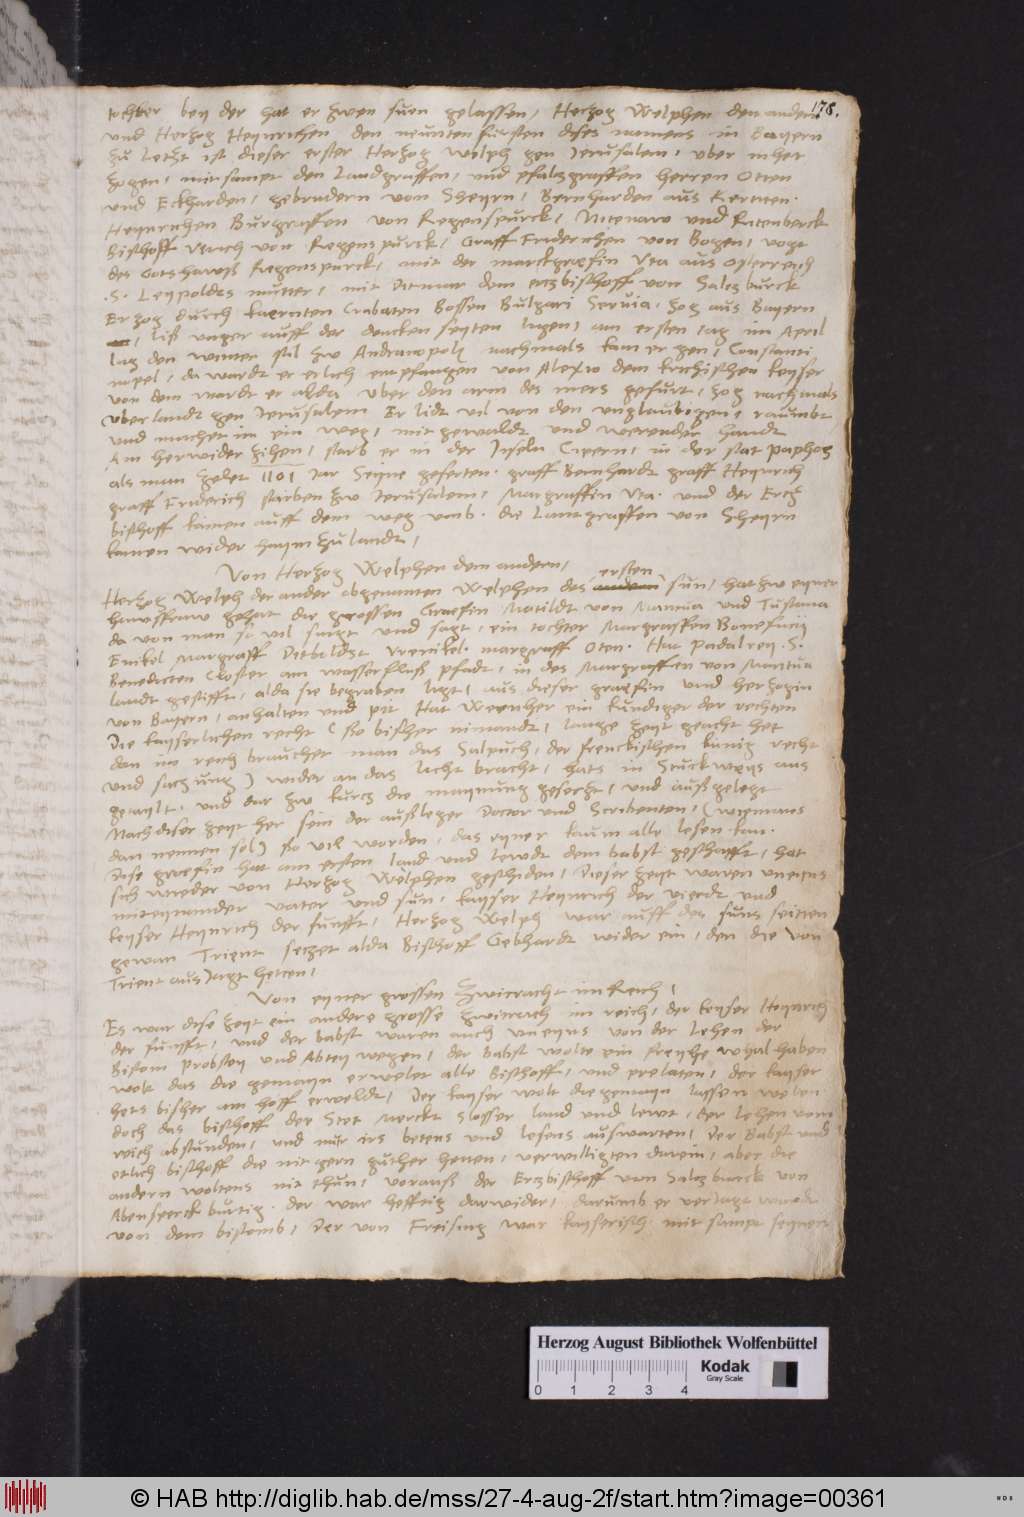 178.
tochter bey der hat er zwen suen gelassen, Herzog Welphen den andern
und Herzog Heynrichen den neunten fursten dises namens in Bayern
zu letzt ist dieser erster Herzog Welph gen Jerusalem, uber mher
zogen, mit sampt den Landgraffen, und pfaltzgraffen herren Otten
und Eckharden, gebrudern von Sheyrn, Bernharden aus Kernten.
Heynrichen Burgraffen von Regenspurck, Nitenaw und Ritenberck
Bisthoff Ulrich von Regenspurck, Graff Friderichen von Bogen, vogt
des Gotshauß Regenspurck, mit der marckgræfin Uta aus Osterreich
.S. Leypoldes mutter, mit Ditmar dem ertzbisthoff von Saltzburck
Er zog durch kærnten Crabaten Bossen Bulgari Servia, zog aus Bayern
ließ unger auff der dencken seyten ligen, am ersten tag im April
lag den winter stil zw Andranopoly nachmals kam er gen, Constanti
nopel, da wardt er erlich empfangen von Alexio dem krichischen keyser
von dem wardt er alda uber den arm des mers gefurt, zog nachmals
uber landt gen Jerusalem Er lidt vil von den unglaubigen, raumbt
und machet im ein weg, mit gewaldt und werender handt
Am herwider zihen, starb er in der Inseln Cipern, in der stat Paphos
als man zelet 1101 Jar Seine geferten. graff Bernhardt graff Heynrich
graff Friderich starben zw Jerusalem, Margraffin Uta. und der Ertz
bisthoff kamen auff dem weg umb. die Lantgraffen von Sheyrn
kamen wider haym zu landt,
Von Herzog Welphen dem andern,
ersten
Herzog Welph der ander abgenanten Welphen des andern sun, hat zw eyner
hawsfraw gehat die grossen Græfin Matildt von Mantua und Tustana
da von man so vil singt und sagt, ein tochter Margraffen Bonefacij
Enikel Margraff Ditboldst Urenikel. margraff Oten. Hat Padalrey .S.
Benedicten Closter am wasserfluß pfadt, in des Margraffen von Mantua
landt gestifft, alda sie begraben ligt, aus dieser græfin und herzogin
von Bayern, anhalten und pit Hat Wernher ein kundiger der rechten
Die kayserlichen recht (so bisher nimandt, lange zeyt geacht het
dan im reich braucher man das Salpuch, der frenckisthen kunig recht
und satzung) wider an das licht bracht, hats in Stuckweys aus
getaylt, und dar zw kurtz die maynung gesetzt, und außgelegt
Nach diser zeyt her sein der außleger Doctor und Scribenten, (wiemans
dan nennen sol) so vil worden, das eyner kaum alle lesen kan.
Dise græfin hat am ersten land und lewdt dem babst geschafft, hat
sich wieder von Herzog Welphen geschiden, Dieser zeyt waren uneyns
miteynander vater und sun, kayser Heynrich der vierdt und
keyser Heynrich der funfft, Herzog Welph war auff des suns seitten
gewan Trient setzet alda Bisthoff Gebhardt wider ein, den die von
Trient aus Jagt hetten,
Von eyner grossen Zwitracht im Reich,
Es war dise zeyt ein andere grosse zwitrach im reich, der keyser Heynrich
der funfft, und der babst waren auch uneyns von der Lehen der
Bistom Probstey und Abtey wegen, der babst wolte ein freyhe whal haben
wolt das die gemayn erwelet alle Bisthoff, und prelaten, der kayser
hets bisher am hoff erweldt, Der kayser wolt die gemayn lassen welen
doch das bisthoff der Stet Merckt Slosser land und lewt, der Lehen vom
reich abstunden, und nur irs betens und lesens auswarten, Der Babst und
etlich bisthoff die nit gern guther hetten, verwilligten darein, aber die
andern woltens nit thun, vorauß der Ertzbisthoff vom Saltzburck von
Abensperck burtig. der war hefftig darwider, darumb er verJagt wardt
von dem bistomb, Der von Freising war kayserisch mit sampt seynen
Herzog August Bibliothek Wolfenbüttel
Kodak
Gray Scale
0 1 2 3 4
© HAB http://diglib.hab.de/mss/27-4-aug-2f/start.htm?image=00361